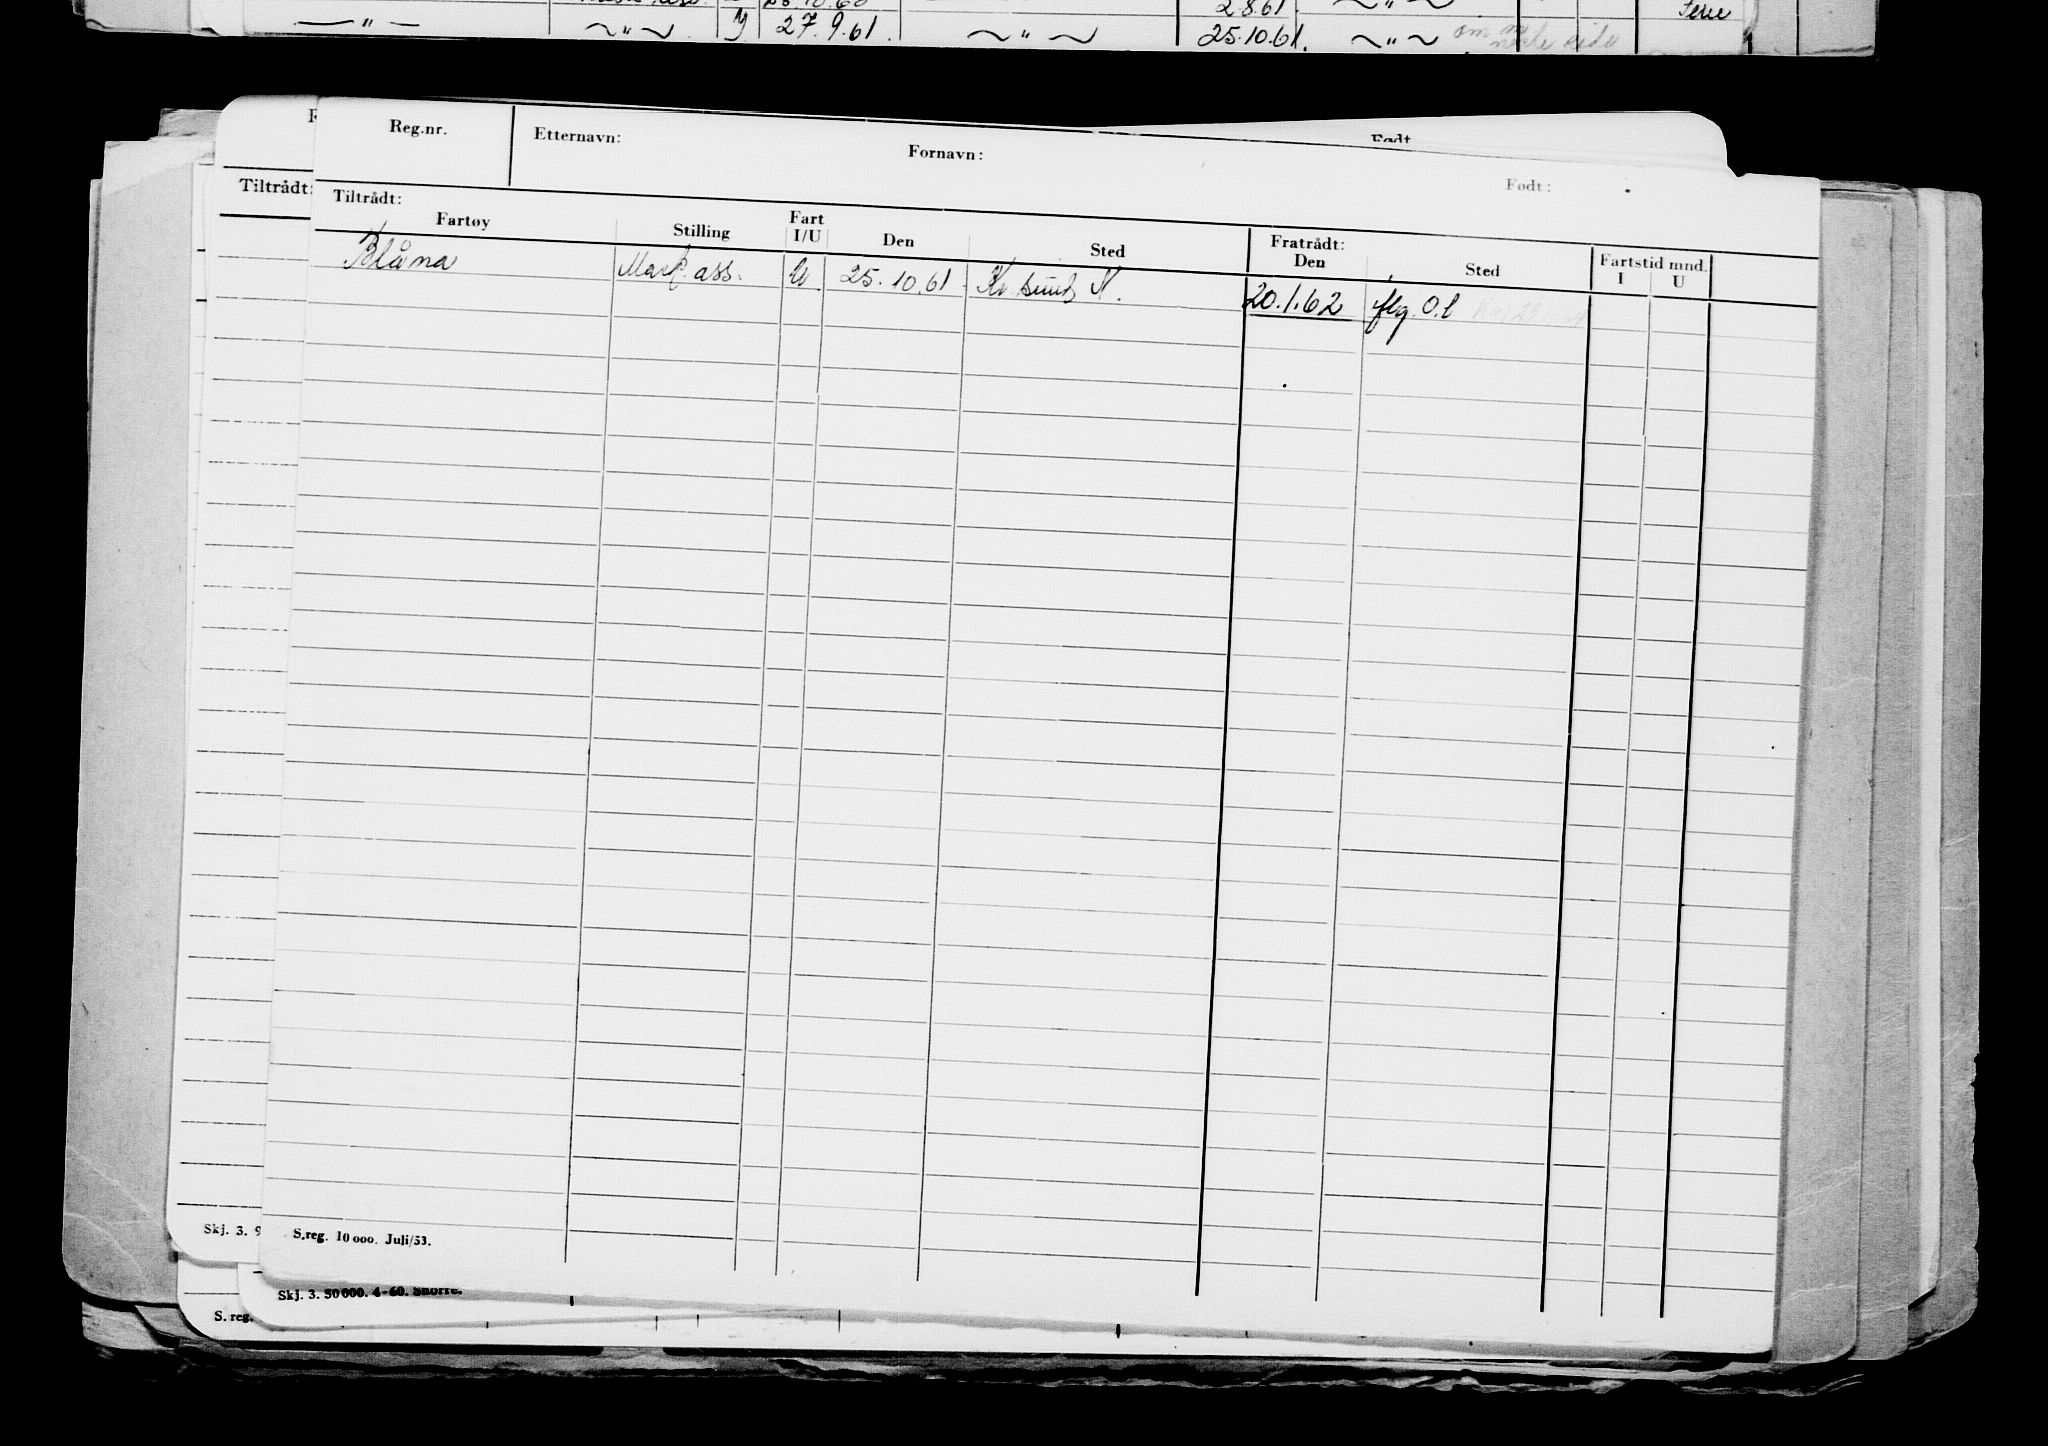 2 8.61. ~ " ~ Ferie
— " — ~ " ~ 27.9.61. ~ " ~ 25.10.61. ~ " ~
Reg.nr. Etternavn: Fornavn: Født
Født:
Tiltrådt: Tiltrådt:
Fartøy Stilling Fart I/U Den Sted Fratrådt: Den Sted Fartstid mnd. I U
Blåna Mask. ass. U. 25.10.61 Kr. sund N. 20.1.62 flg. O.l
Skj. 3. 9 S.reg. 10 000. Juli/53.
Skj. 3. 50 000. 4-60. Snorre.
S. reg.